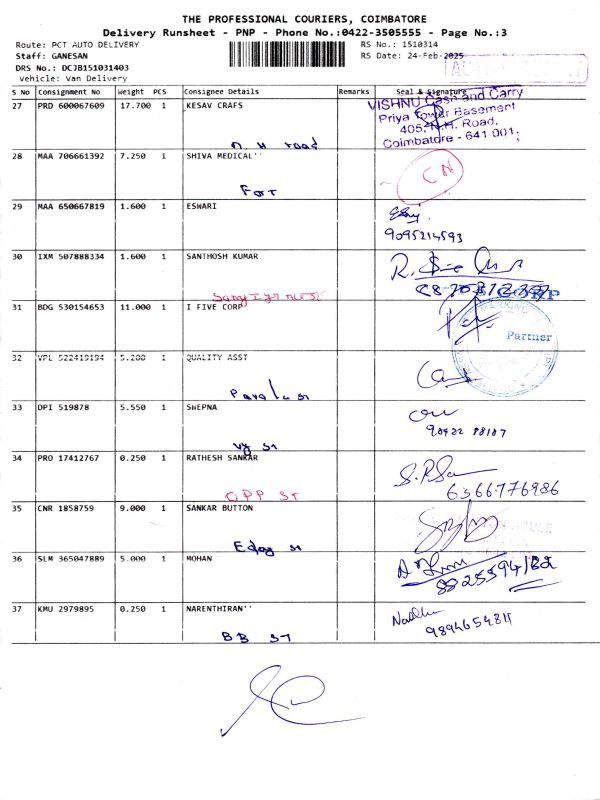 THE PROFESSIONAL COURIERS, COIMBATORE
Delivery Runsheet - PNP - Phone No.:0422-3505555 - Page No.:3
Route: PCT AUTO DELIVERY RS No.: 1510314
Staff: GANESAN RS Date: 24-Feb-2025
DRS No.: DCJB151031403
Vehicle: Van Delivery
S No Consignment No Weight PCS Consignee Details Remarks Seal & Signature
27 PRD 600067609 17.700 1 KESAV CRAFS
VISHNU Cash and Carry
Priya Tower Basement
405, N.H. Road,
Coimbatore - 641 001.
N H road
28 MAA 706661392 7.250 1 SHIVA MEDICAL''
CN
Fort
29 MAA 650667819 1.600 1 ESWARI
9095214593
30 IXM 507888334 1.600 1 SANTHOSH KUMAR
31 BDG 530154653 11.000 1 I FIVE CORP
Partner
32 VPL 522419194 5.200 1 QUALITY ASST
33 DPI 519878 5.550 1 SWEPNA
90422 88187
34 PRO 17412767 0.250 1 RATHESH SANKAR
6366776986
OPP ST
35 CNR 1858759 9.000 1 SANKAR BUTTON
36 SLM 365047889 5.000 1 MOHAN
37 KMU 2979895 0.250 1 NARENTHIRAN''
9894654811
BB ST